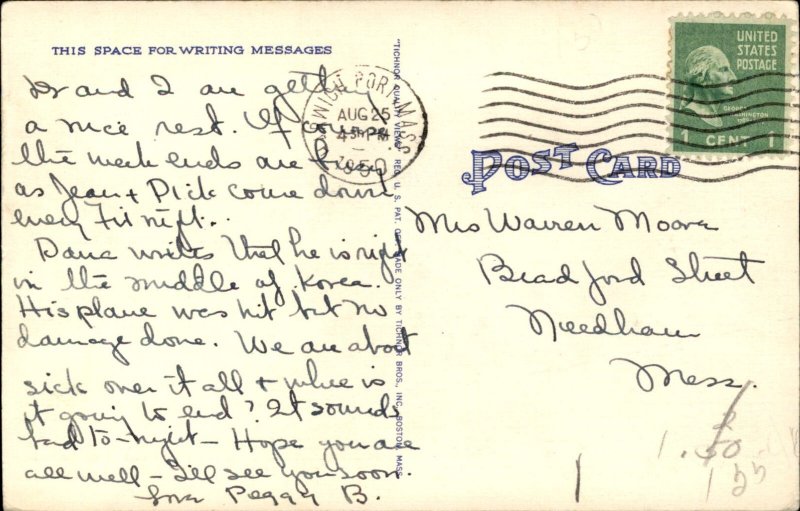 THIS SPACE FOR WRITING MESSAGES
and I are getting
a nice rest. Of course
the week ends are busy
as Jean + Dick come down
every Fri night..
Dana writes that he is right
in the middle of Korea.
His plane was hit but no
damage done. We are about
sick over it all + where is
it going to end? It sounds
bad to-night - Hope you are
all well - I'll see you soon.
Love Peggy B.
"TICHNOR QUALITY VIEWS" REG. U. S. PAT. OFF. MADE ONLY BY TICHNOR BROS., INC., BOSTON, MASS.
PORT, MASS.
AUG 25
4 PM
1950
UNITED
STATES
POSTAGE
GEORGE
WASHINGTON
1 CENT 1
POST CARD
Mrs Warren Moore
Bradford Street
Needham
Mass.
1.50
1